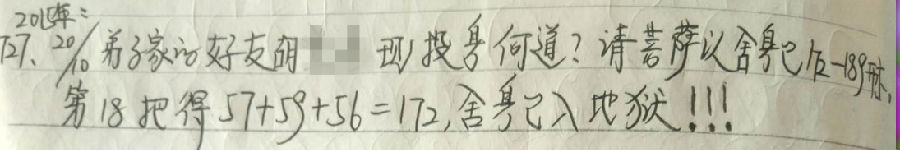 2015年:
727、20/10 弟子家的好友胡 现投身何道?请菩萨以舍身已后-189标,
第18把得57+59+56=172,舍身已入地狱!!!